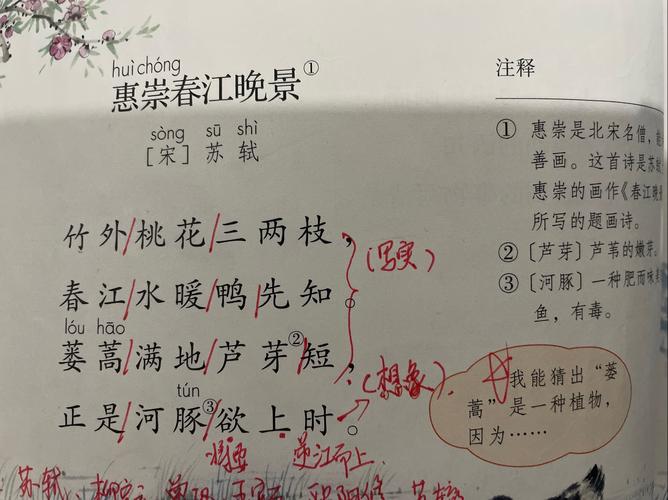 huì chóng
惠崇春江晚景①
sòng sū shì
[宋] 苏轼
竹外/桃花/三两枝，
（写实）
春江/水暖/鸭先知。
lóu hāo
蒌蒿/满地/芦芽②/短，
（想象）
tún
正是/河豚③/欲上时。
将要 逆江而上
苏轼、柳宗元 曾巩 王安石 欧阳修
注释
① 惠崇是北宋名僧，能
善画。这首诗是苏轼
惠崇的画作《春江晚景
所写的题画诗。
② 〔芦芽〕芦苇的嫩芽。
③ 〔河豚〕一种肥而味美
鱼，有毒。
我能猜出“蒌
蒿”是一种植物，
因为……